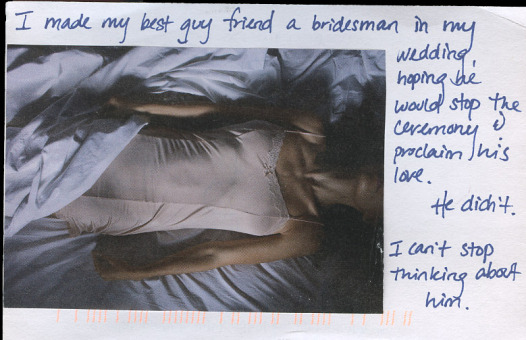 I made my best guy friend a bridesman in my
wedding,
hoping he
would stop the
ceremony &
proclaim his
love.
He didn't.
I can't stop
thinking about
him.